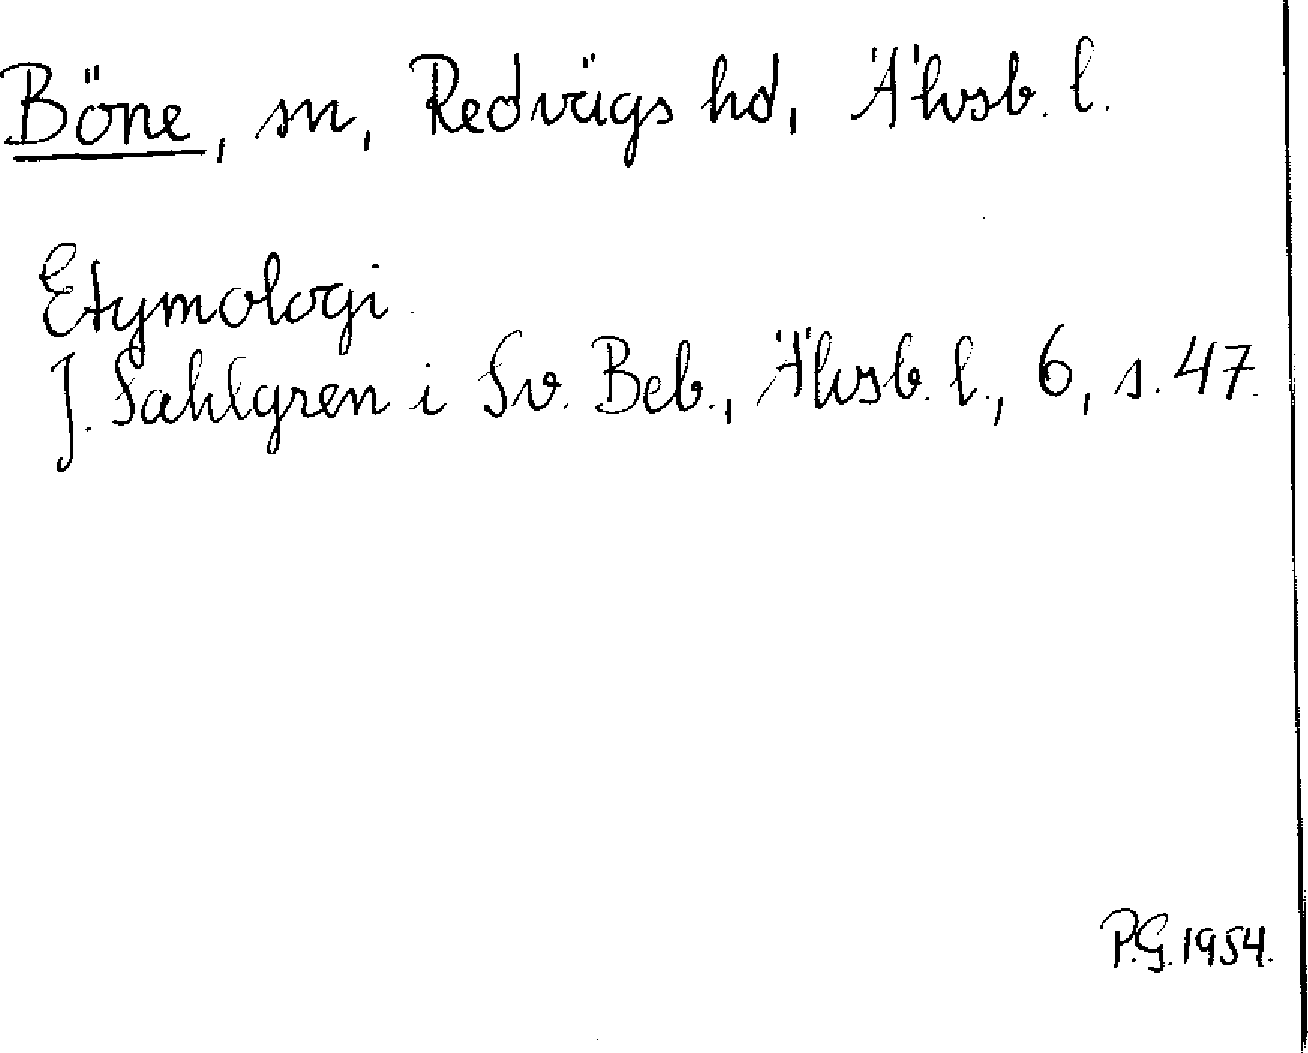 Böne, sn, Redvägs hd, Älvsb. l.
Etymologi.
J. Sahlgren i Sv. Beb., Älvsb. l., 6, s. 47.
P.G. 1954.